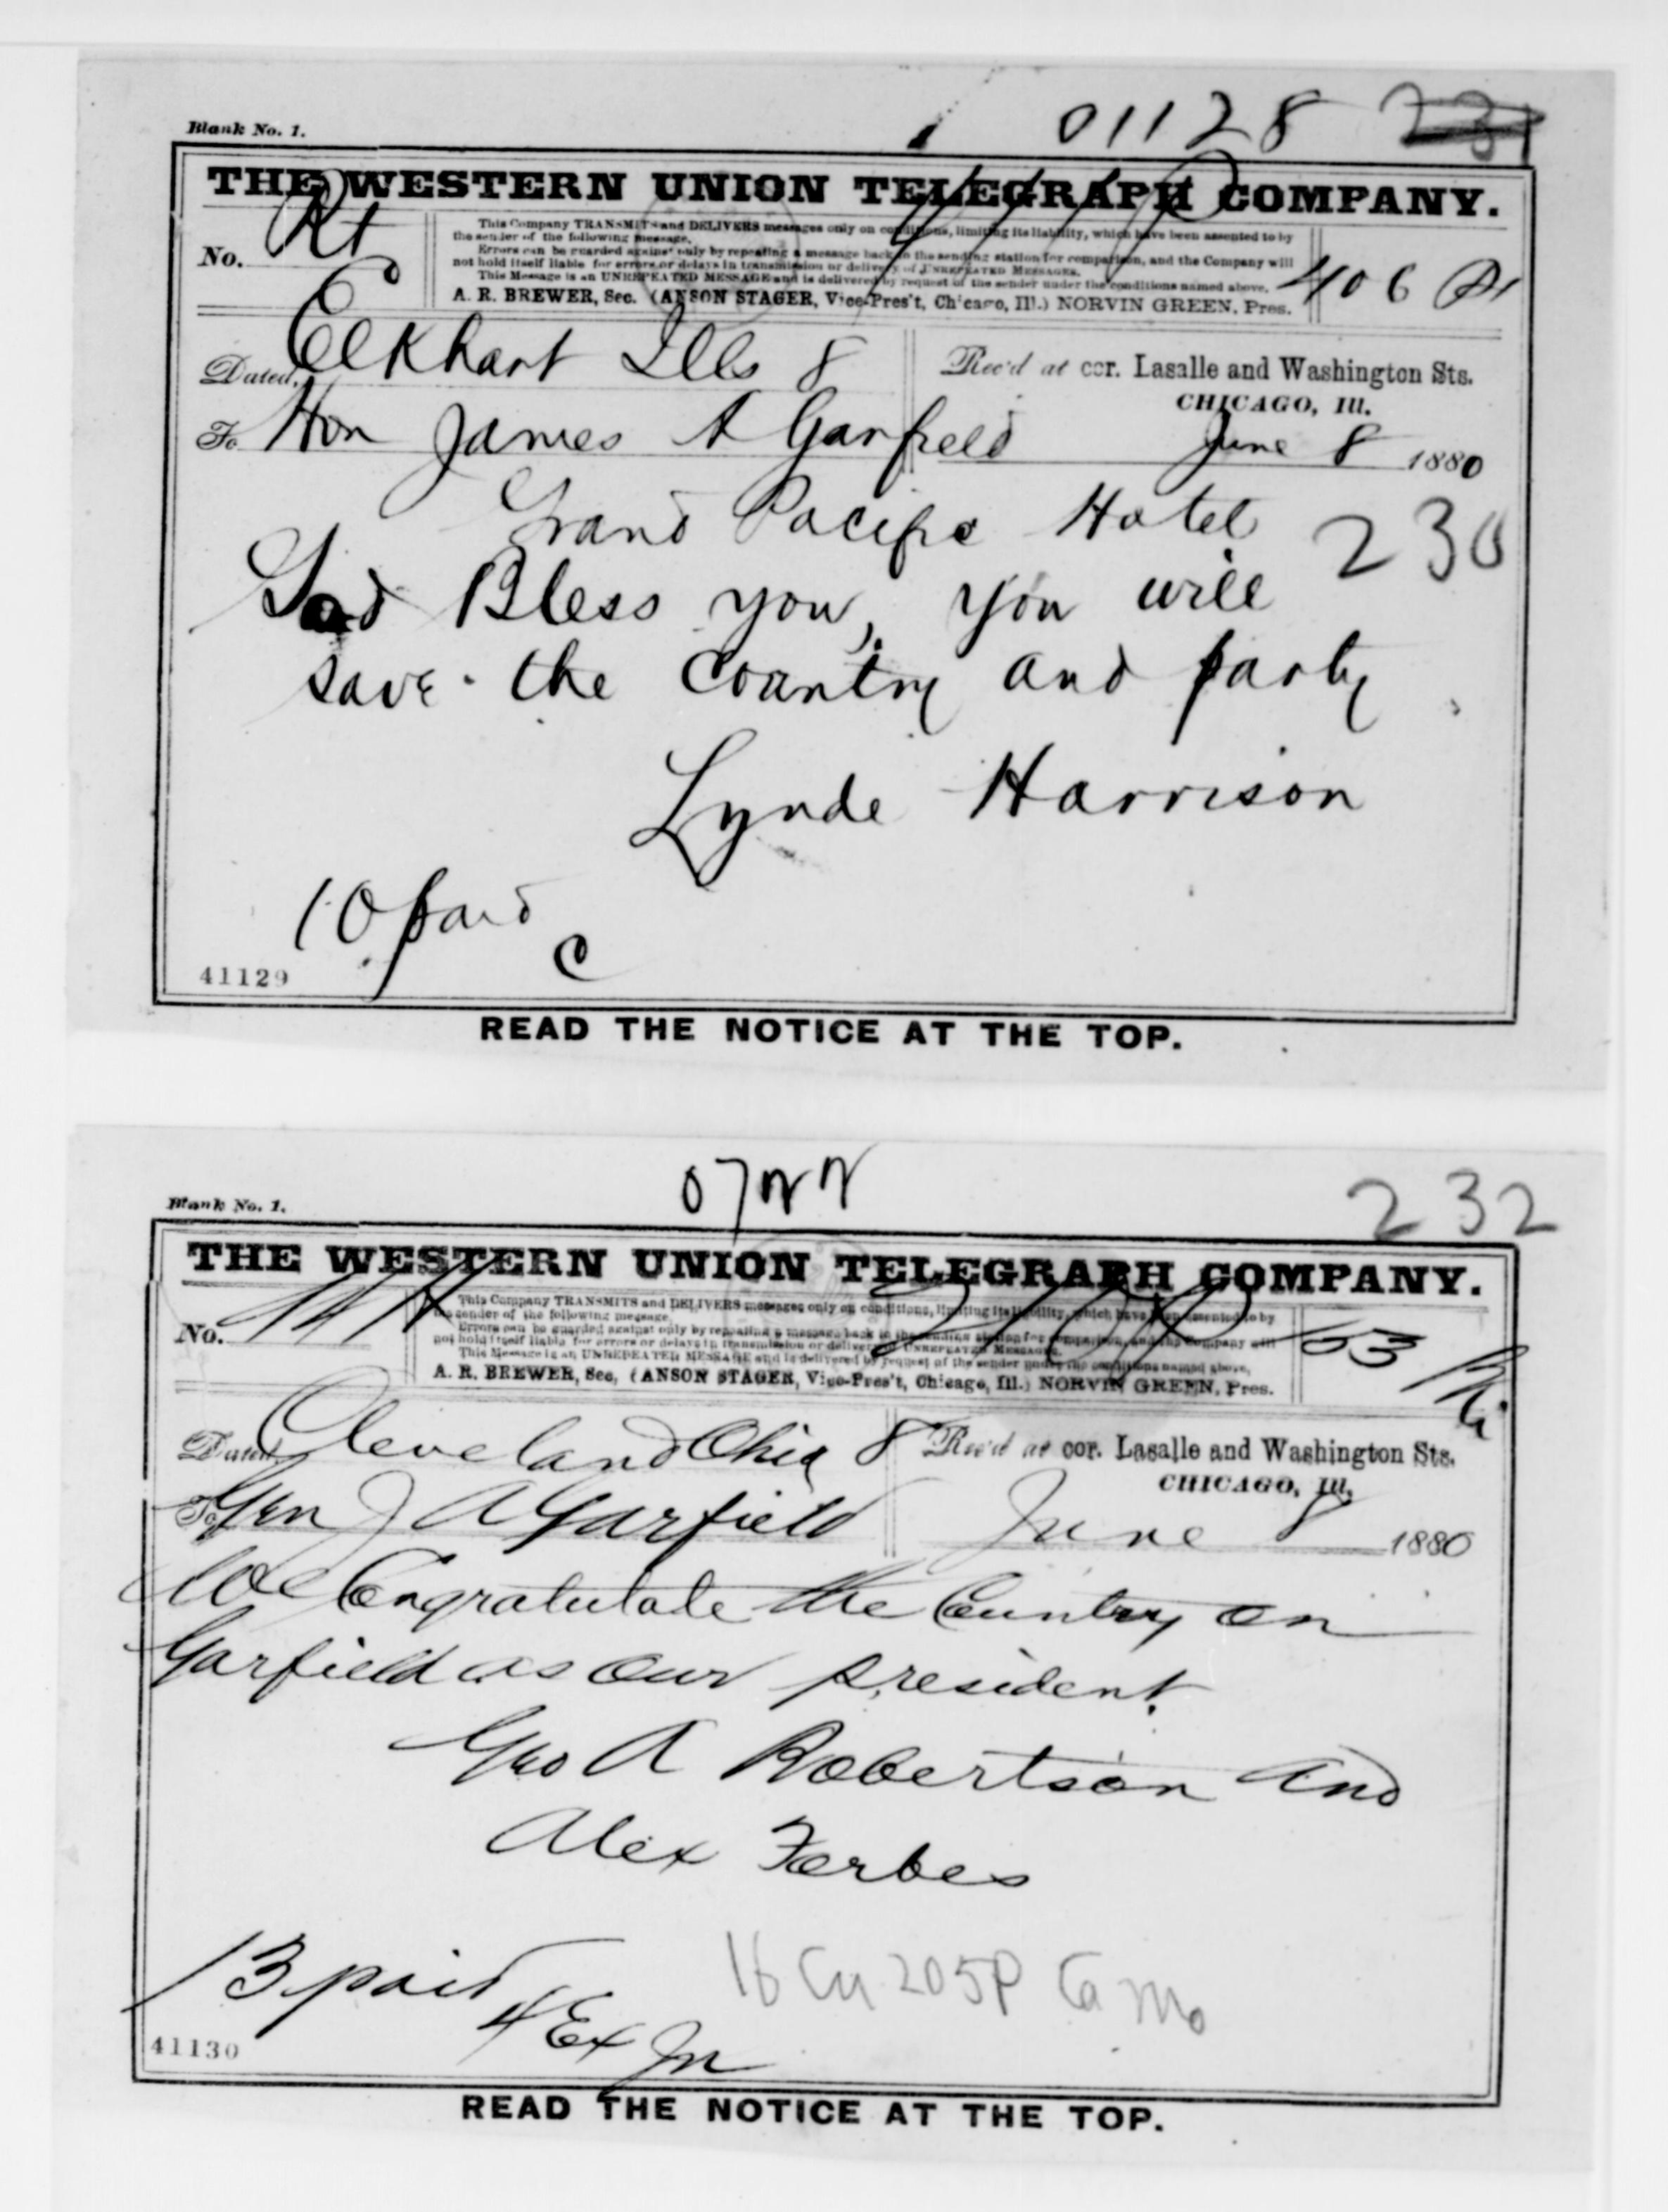 01128 231
Blank No. 1.
THE WESTERN UNION TELEGRAPH COMPANY.
No. Rt
This Company TRANSMITS and DELIVERS messages only on conditions, limiting its liability, which have been assented to by
the sender of the following message.
Errors can be guarded against only by repeating a message back to the sending station for comparison, and the Company will
not hold itself liable for errors or delays in transmission or delivery of UNREPEATED MESSAGES.
This Message is an UNREPEATED MESSAGE and is delivered by request of the sender under the conditions named above.
A. R. BREWER, Sec. (ANSON STAGER, Vice-Pres't, Chicago, Ill.) NORVIN GREEN, Pres.
406
Dated, Elkhart Ills 8
Rec'd at cor. Lasalle and Washington Sts.
CHICAGO, Ill.
To Hon James A Garfield June 8 1880
Grand Pacific Hotel 230
God Bless you, you will
save the Country and party
Lynde Harrison
10 paid
C
41129
READ THE NOTICE AT THE TOP.
232
Blank No. 1.
THE WESTERN UNION TELEGRAPH COMPANY.
No.
This Company TRANSMITS and DELIVERS messages only on conditions, limiting its liability, which have been assented to by
the sender of the following message.
Errors can be guarded against only by repeating a message back to the sending station for comparison, and the Company will
not hold itself liable for errors or delays in transmission or delivery of UNREPEATED MESSAGES.
This Message is an UNREPEATED MESSAGE and is delivered by request of the sender under the conditions named above.
A. R. BREWER, Sec, (ANSON STAGER, Vice-Pres't, Chicago, Ill.) NORVIN GREEN, Pres.
53
Dated Cleveland Ohio 8
Rec'd at cor. Lasalle and Washington Sts.
CHICAGO, Ill,
To Gen J A Garfield June 8 1880
We Congratulate the Country on
Garfield as our president.
Geo A Robertson and
Alex Forbes
13 paid
4 Ex Jn
16 Cu 205P Ca Mo
41130
READ THE NOTICE AT THE TOP.